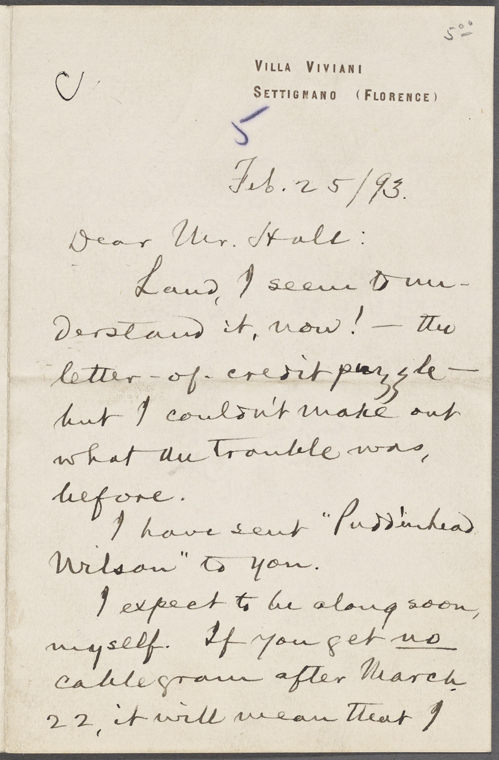 5⁰⁰
VILLA VIVIANI
SETTIGNANO (FLORENCE)
5
Feb. 25/93.
Dear Mr. Hall:
Land, I seem to un-
derstand it, now! — the
letter-of-credit puzzle—
but I couldn't make out
what the trouble was,
before.
I have sent "Pudd'nhead
Wilson" to you.
I expect to be along soon,
myself. If you get no
cablegram after March
22, it will mean that I